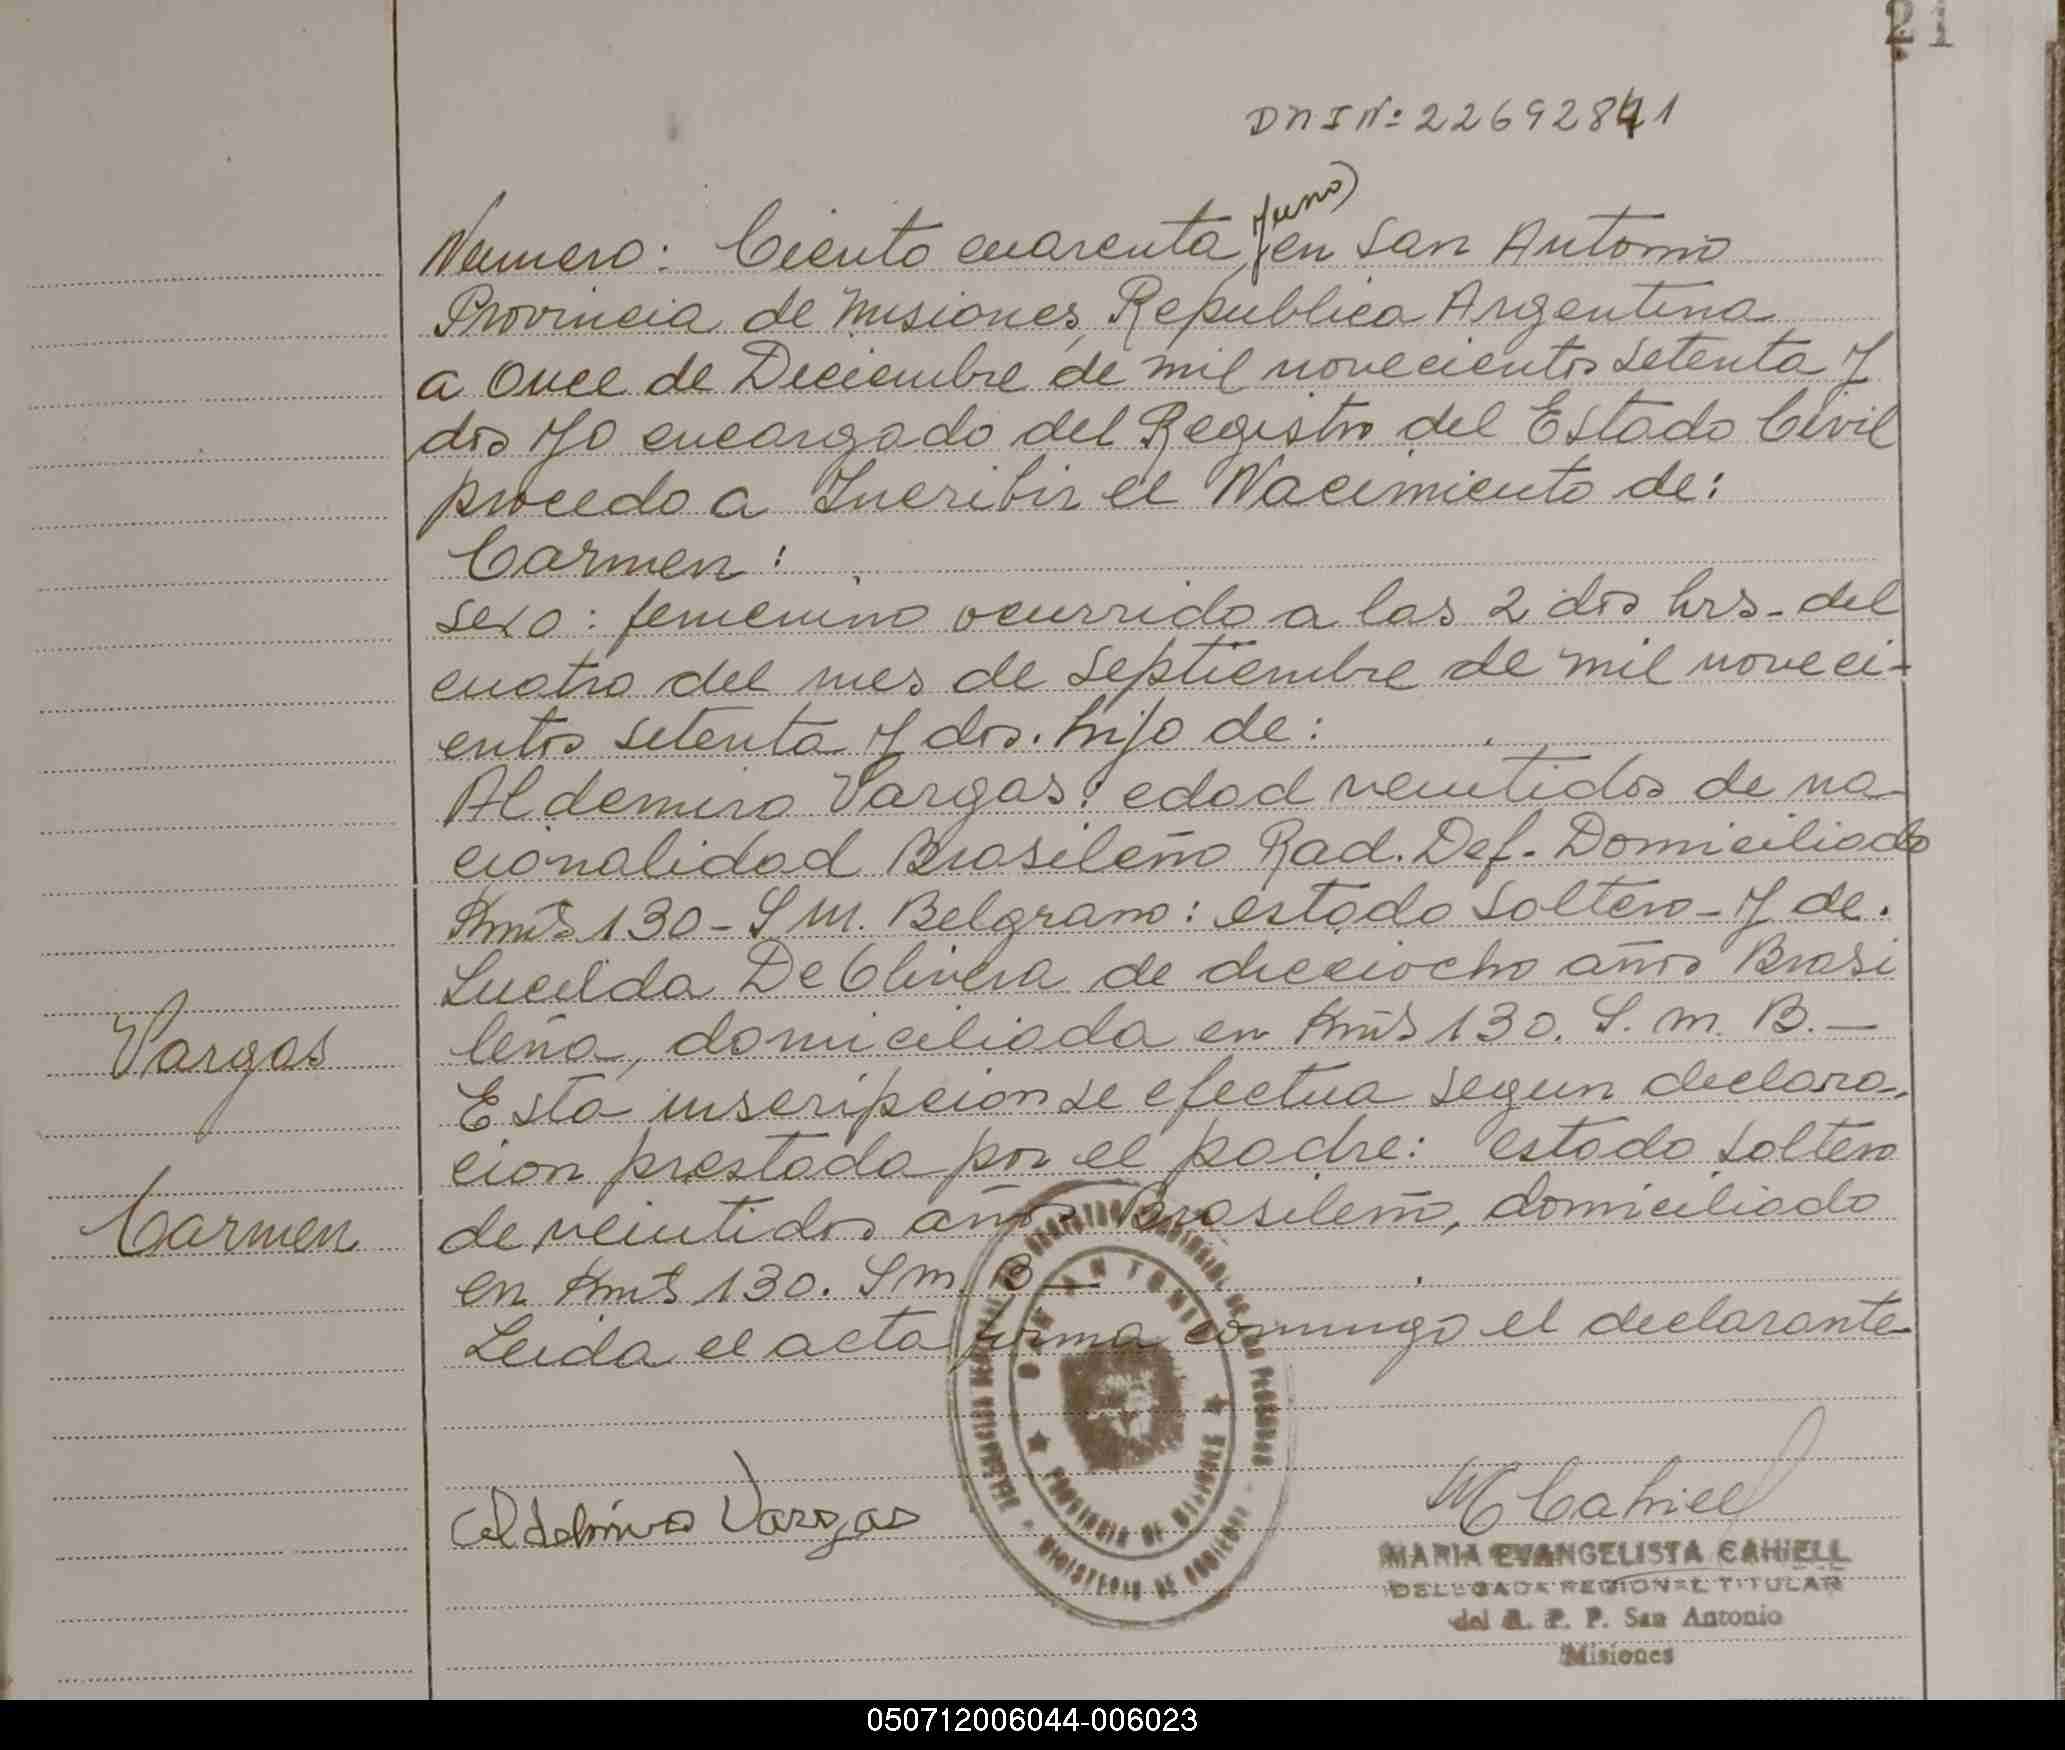 21
DNI Nº 22692841
y uno)
Numero: Ciento cuarenta, en San Antonio
Provincia de Misiones, Republica Argentina
a Once de Diciembre de mil novecientos setenta y
dos yo encargado del Registro del Estado Civil
procedo a Incribir el Nacimiento de:
Carmen:
sexo: femenino ocurrido a las 2 dos hrs - del
cuatro del mes de septiembre de mil noveci-
entos setenta y dos. hijo de:
Aldemiro Vargas: edad veintidos de na-
cionalidad Brasileño Rad. Def. Domiciliado
Kmts 130 - S M. Belgrano: estado soltero - y de.
Lucilda De Olivera de dieciocho años Brasi
leña, domiciliada en Kmts 130. S. M. B. -
Vargas
Esta inscripcion se efectua segun declara-
cion prestada por el padre: estado soltero
Carmen
de veintidos años Brasileño, domiciliado
en Kmts 130. S M. B -
Leida el acta firma conmigo el declarante
SAN ANTONIO
PROVINCIA DE MISIONES
MINISTERIO DE GOBIERNO
Vargas
M Cahiell
MARIA EVANGELISTA CAHIELL
DELEGADA REGIONAL TITULAR
del R. P. P. San Antonio
Misiones
050712006044-006023